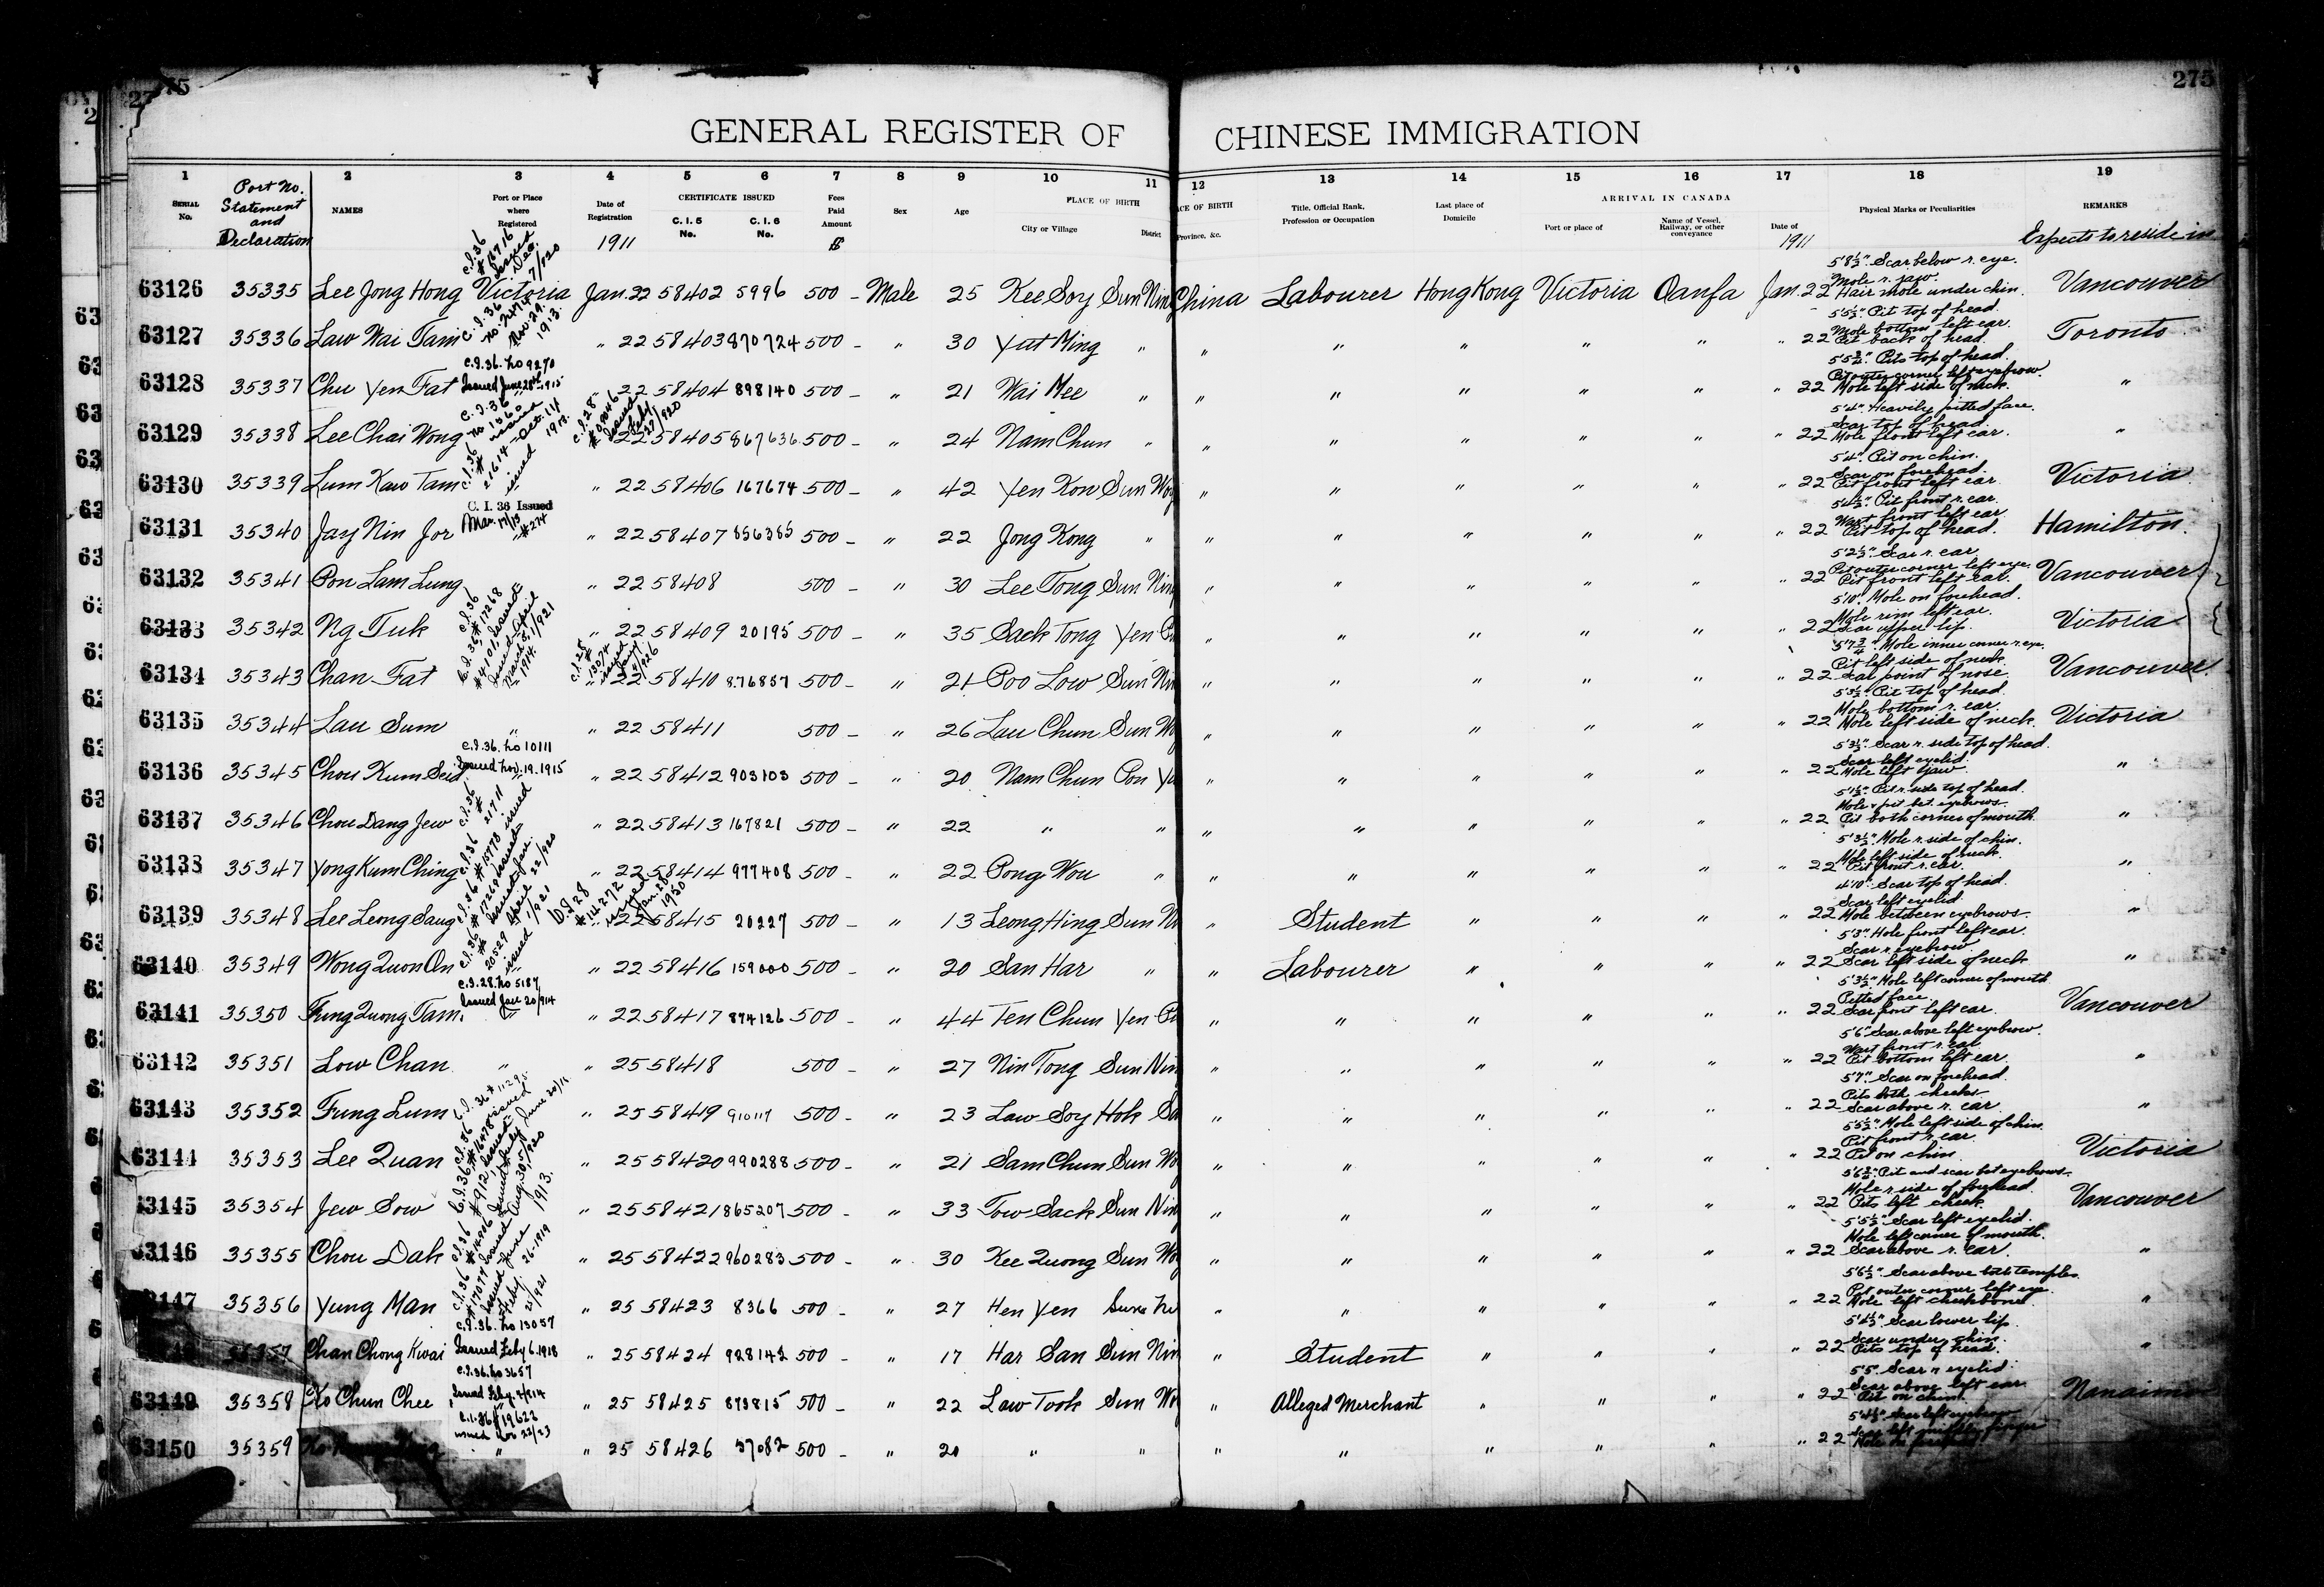 275
275
GENERAL REGISTER OF CHINESE IMMIGRATION
1 2 3 4 5 6 7 8 9 10 11 12 13 14 15 16 17 18 19
SERIAL No. Port No. Statement and Declaration NAMES Port or Place where Registered Date of Registration CERTIFICATE ISSUED C. I. 5 No. C. I. 6 No. Fees Paid Amount Sex Age PLACE OF BIRTH City or Village District Province, &c. Title, Official Rank, Profession or Occupation Last place of Domicile ARRIVAL IN CANADA Port or place of Name of Vessel, Railway, or other conveyance Date of Physical Marks or Peculiarities REMARKS
1911 $ 1911 Expects to reside in
5'8½" Scar below r. eye.
Mole r. jaw.
63126 35335 Lee Jong Hong Victoria Jan. 22 58402 5996 500 - Male 25 Kee Soy Sun Nin China Labourer Hong Kong Victoria Oanfa Jan. 22 Hair mole under chin. Vancouver
5'5½" Pit top of head.
Mole bottom left ear.
63127 35336 Law Wai Tam " 22 58403 870724 500 - " 30 Yut Ming " " " " " " " 22 Pit back of head. Toronto
C.I.36. No 9270
Issued June 28th 1915
5'5¾" Pits top of head.
Pit outer corner left eyebrow.
63128 35337 Chu Yen Fat " 22 58404 898140 500 - " 21 Wai Mee " " " " " " " 22 Mole left side of neck. "
5'4" Heavily pitted face.
Scar top of head.
63129 35338 Lee Chai Wong 22 58405 867636 500 - " 24 Nam Chun " " " " " " " 22 Mole front left ear. "
5'4" Pit on chin.
Scar on forehead.
63130 35339 Lum Kaw Tam " 22 58406 167674 500 - " 42 Yen Kon Sun Woy " " " " " " 22 Pit front left ear. Victoria
C. I. 36 Issued
Mar. 17/13 #274
5'4½" Pit front r. ear.
Wart front left ear.
63131 35340 Jay Nin Jor " 22 58407 856385 500 - " 22 Jong Kong " " " " " " " 22 Pit top of head. Hamilton.
5'2½" Scar r. ear.
Pit outer corner left eye.
63132 35341 Pon Lam Lung " 22 58408 500 - " 30 Lee Tong Sun Nin " " " " " " 22 Pit front left ear. Vancouver
5'10" Mole on forehead.
Mole rim left ear.
63133 35342 Ng Tuk " 22 58409 20195 500 - " 35 Sack Tong Yen P " " " " " " 22 Scar upper lip. Victoria
5'7¾" Mole inner corner r. eye.
Pit left side of neck.
63134 35343 Chan Fat " 22 58410 876857 500 - " 21 Poo Low Sun Nin " " " " " " 22 Scar point of nose. Vancouver.
5'3½" Pit top of head.
Mole bottom r. ear.
63135 35344 Lau Sum " " 22 58411 500 - " 26 Lau Chun Sun Wo " " " " " " 22 Mole left side of neck. Victoria
C.I.36. No 10111
Issued Nov. 19. 1915
5'3½" Scar r. side top of head.
Scar left eyelid.
63136 35345 Chou Kum Seid " 22 58412 903103 500 - " 20 Nam Chun Pon Yu " " " " " " 22 Mole left jaw. "
5'1½" Pit r. side top of head.
Mole & pit bet. eyebrows.
63137 35346 Chou Dang Jew " 22 58413 167821 500 - " 22 " " " " " " " " 22 Pit both corner of mouth. "
5'3½" Mole r. side of chin.
Mole left side of neck.
63138 35347 Yong Kum Ching " 22 58414 977408 500 - " 22 Pong Wou " " " " " " " 22 Pit front r. ear. "
4'10" Scar top of head.
Scar left eyelid.
63139 35348 Lee Leong Saug 22 58415 20227 500 - " 13 Leong Hing Sun N " Student " " " " 22 Mole between eyebrows. "
5'3" Hole front left ear.
Scar r. eyebrow.
63140 35349 Wong Quon On " 22 58416 159000 500 - " 20 San Har " " Labourer " " " " 22 Scar left side of neck "
C.I.28. No 5187
Issued Jan 20/914
5'3½" Mole left corner of mouth
Pitted face.
63141 35350 Fung Quong Tam. " 22 58417 874126 500 - " 44 Ten Chun Yen P " " " " " " 22 Scar front left ear. Vancouver
5'6" Scar above left eyebrow.
Wart front r. ear.
63142 35351 Low Chan " " 25 58418 500 - " 27 Nin Tong Sun Nin " " " " " " 22 Pit bottom left ear. "
5'7" Scar on forehead.
Pits both cheeks.
63143 35352 Fung Lum " 25 58419 910117 500 - " 23 Law Soy Hok Su " " " " " " 22 Scar above r. ear. "
5'5½" Mole left side of chin.
Pit front r. ear.
63144 35353 Lee Quan " 25 58420 990288 500 - " 21 Sam Chun Sun Wo " " " " " " 22 Pit on chin. Victoria
5'6¾" Pit and scar bet eyebrows.
Mole r. side of forehead.
63145 35354 Jew Sow " 25 58421 865207 500 - " 33 Tow Sack Sun Nin " " " " " " 22 Pits left cheek. Vancouver
5'5½" Scar left eyelid.
Mole left corner of mouth.
63146 35355 Chou Dak " 25 58422 960283 500 - " 30 Kee Quong Sun Wo " " " " " " 22 Scar above r. ear. "
5'6½" Scar above both temples.
Pit outer corner left eye.
63147 35356 Yung Man " 25 58423 8366 500 - " 27 Hen Yen Sun " " " " " " 22 Mole left cheekbone. "
C.I.36. No 13057
Issued Feby 6. 1918
5'4½" Scar lower lip.
Scar under chin.
35357 Chan Chong Kwai " 25 58424 928142 500 - " 17 Har San Sun Nin " Student " " " " 22 Pits top of head. "
C.I.36. No 3657
Issued Feby. 4/914
5'5" Scar r. eyelid.
Scar above left ear.
63149 35358 Ko Chun Chee " 25 58425 873815 500 - " 22 Law Took Sun Wo " Alleged Merchant " " " " 22 Pit on chin. Nanaimo
C.I.36 #19622
issued Nov 22/23
5'4½" Scar left eyebrow
63150 35359 " " 25 58426 37082 500 - " 20 " " " " " " " " 22